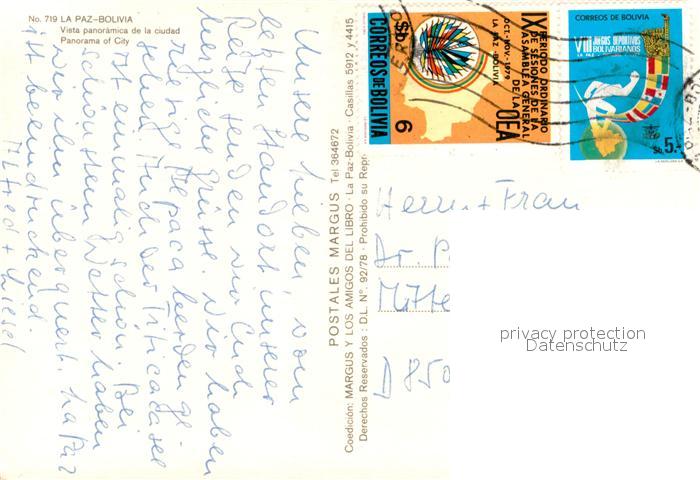 No. 719 LA PAZ–BOLIVIA
Vista panorámica de la ciudad
Panorama of City
Unsere Lieben vom
Reise senden wir Euch
herzliche Grüße. Wir haben
Auch der Titicacasee
ist einmalig schön. Bei
schönstem Wetter haben
wir ihn überquert. La Paz
ist beeindruckend.
Alfred + Liesel
POSTALES MARGUS Tel. 364672
Coedición: MARGUS Y LOS AMIGOS DEL LIBRO · La Paz-Bolivia · Casillas 5912 y 4415
Derechos Reservados : D.L. Nº. 92/78 · Prohibido su Repr
$b 6
CORREOS DE BOLIVIA
IX PERIODO ORDINARIO
DE SESIONES DE LA
ASAMBLEA GENERAL
DE LA OEA
OCT.-NOV.-1979
LA PAZ - BOLIVIA
CORREOS DE BOLIVIA
VIII JUEGOS DEPORTIVOS
BOLIVARIANOS
$b. 5.-
Herrn + Frau
Dr. P
Mitte
D 850
privacy protection
Datenschutz